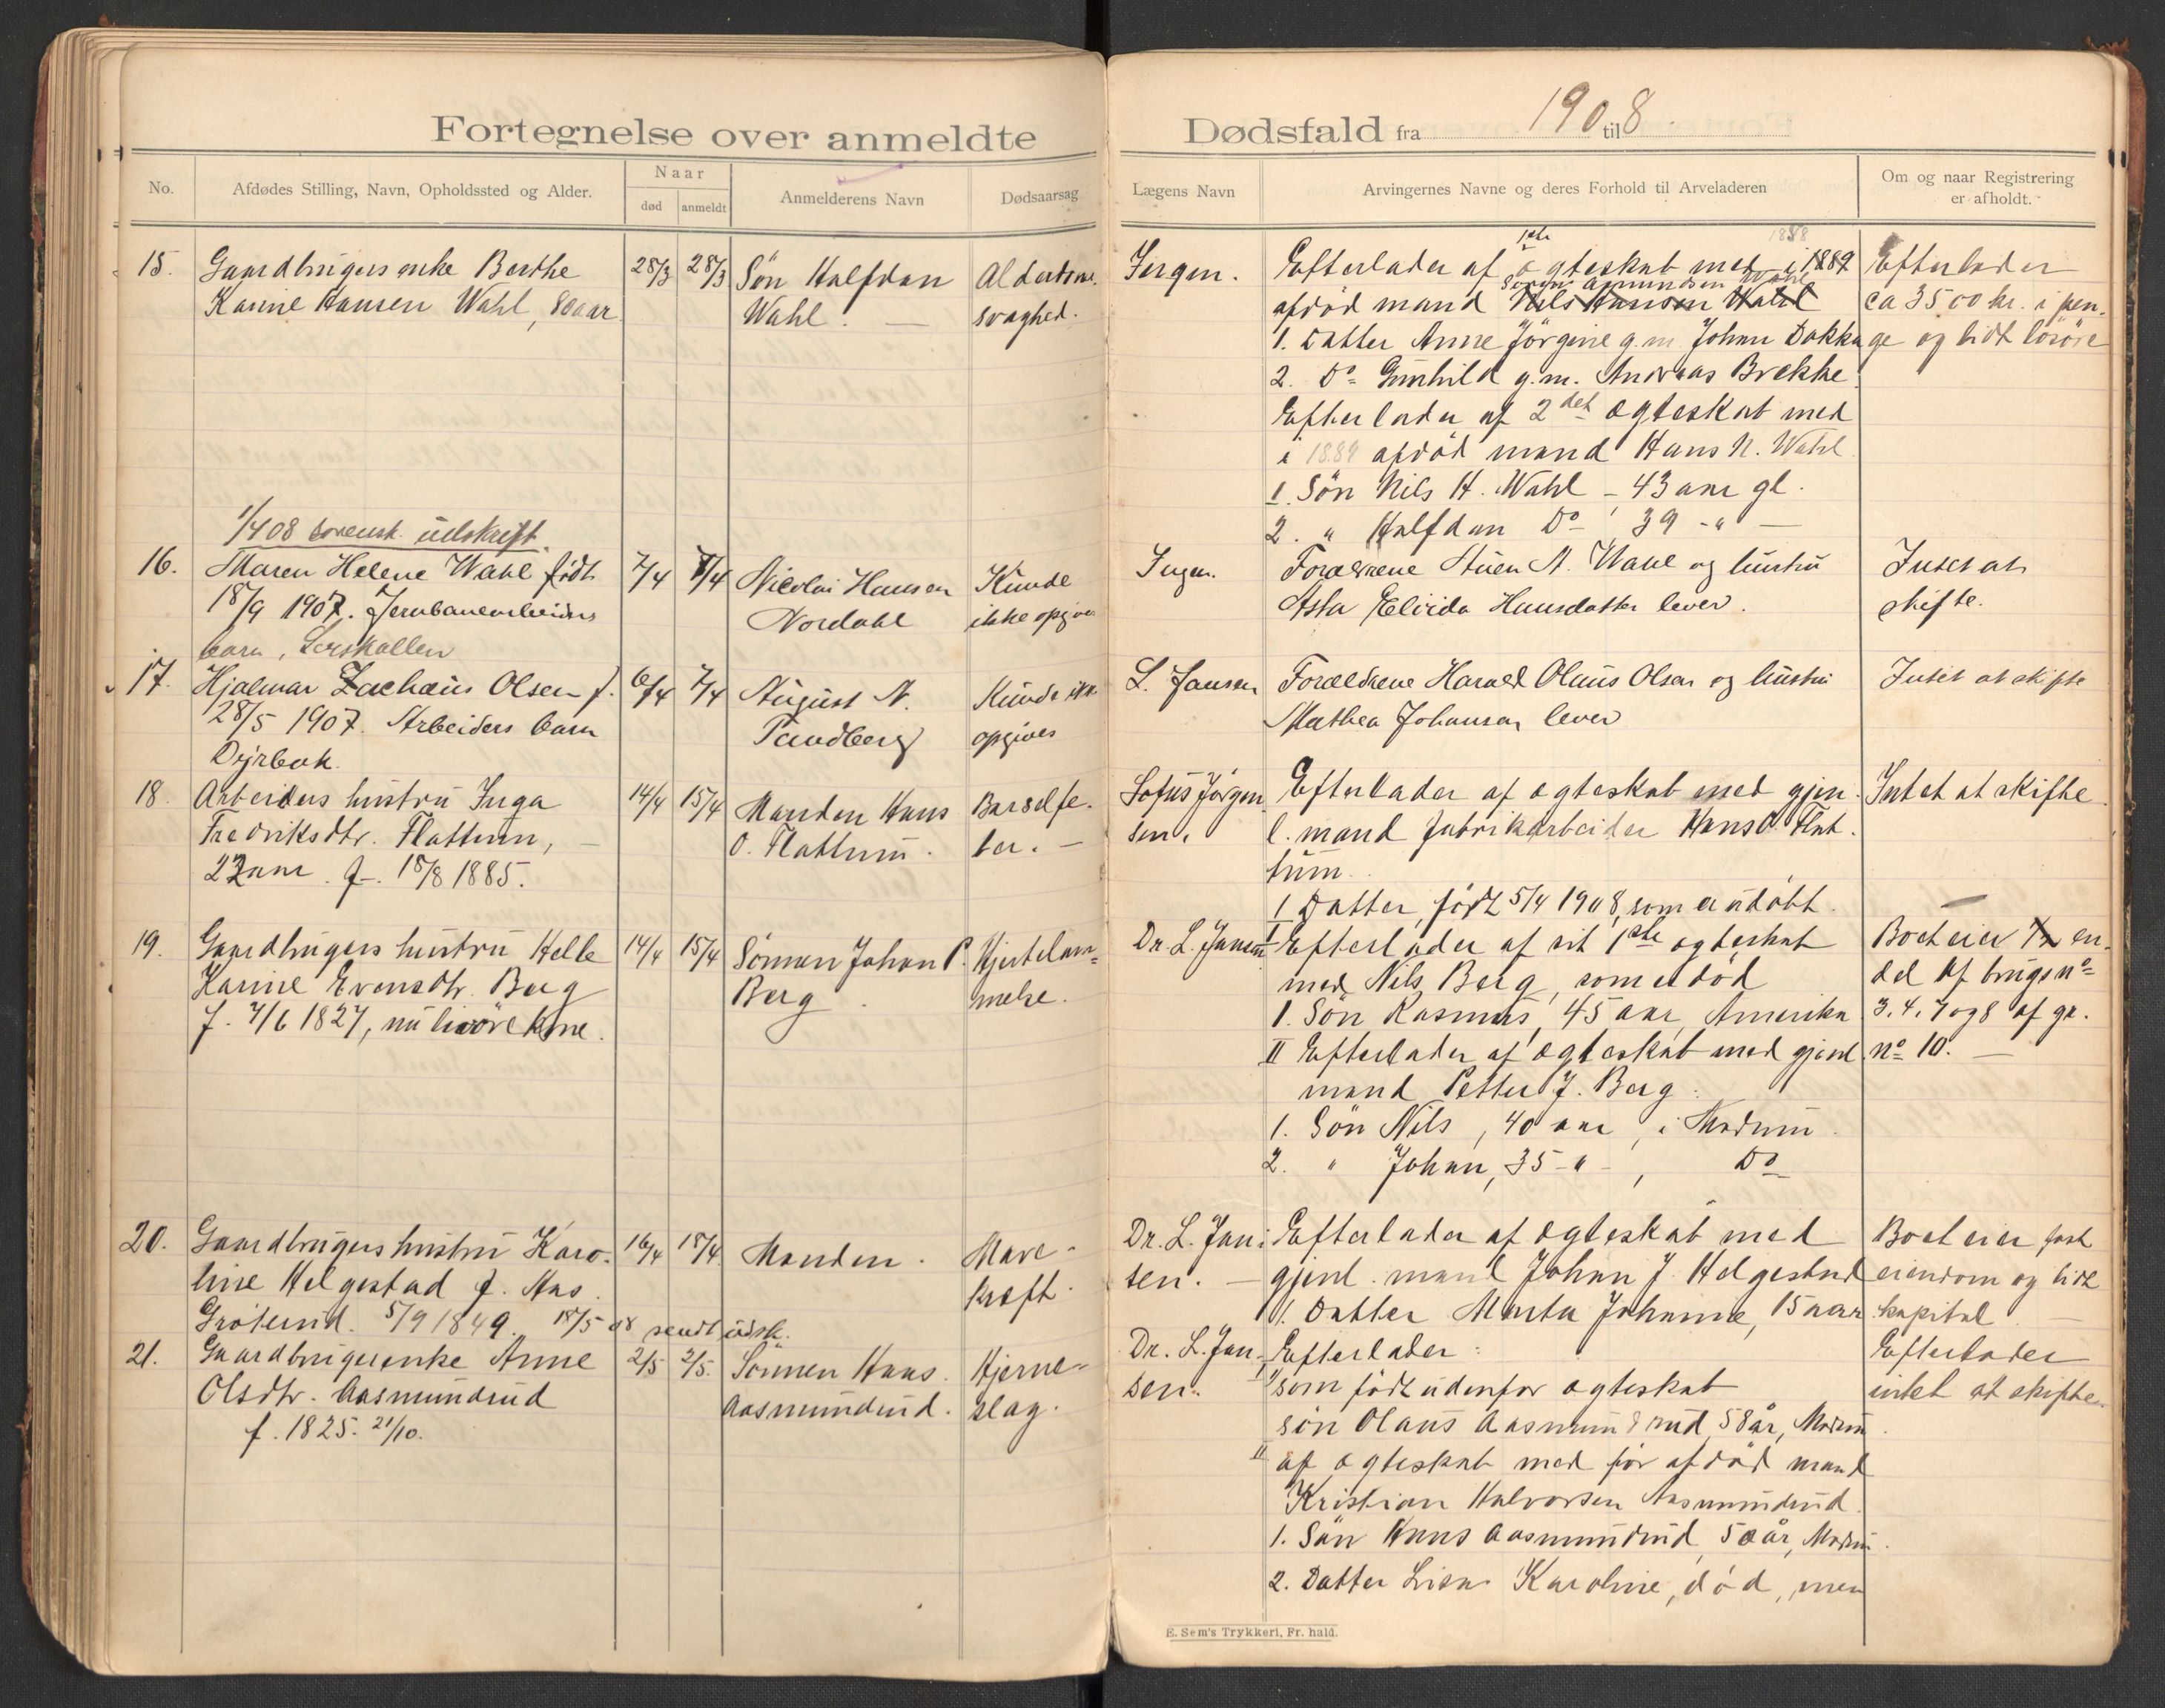 Fortegnelse over anmeldte
No.
Afdødes Stilling, Navn, Opholdssted og Alder.
Naar
død
anmeldt
Anmelderens Navn
Dødsaarsag
15. Gaardbrugers enke Berthe 28/3 28/3 Søn Halfdan Alderdoms
Karine Hansen Wahl, 80 aar Wahl. — svaghed.
1/4 08 sorensk. udskrift.
16. Maren Helene Wahl født 7/4 8/4 Nicolai Hansen Kunde
18/9 1907. Jernbanearbeiders Nordahl ikke opgives
barn,
17. Hjalmar Zachæus Olsen f. 6/4 7/4 August N. Kunde ikke
28/5 1907. Arbeiders barn Sandberg opgives
Dyrbak.
18. Arbeiders hustru Inga 14/4 15/4 Manden Hans Barselfe-
Fredriksdtr. Flattum, — O. Flattum. ber. —
22 aar. f. 18/8 1885.
19. Gaardbrugers hustru Helle 14/4 15/4 Sønnen Johan P. Hjertelam-
Karine Evensdtr. Berg Berg . melse.
f. 4/6 1827, nu livørekone.
20. Gaardbrugers hustru Karo- 16/4 18/4 Manden. Mave-
line Helgestad f. Aas kræft.
Grøterud. 5/9 1849. 18/5 08 sendt udsk.
21. Gaardbrugerenke Anne 2/5 2/5. Sønnen Hans Hjerne-
Olsdtr. Aasmundrud Aasmundrud. slag.
f. 1825. 21/10.
Dødsfald fra 190 til 8.
Lægens Navn
Arvingernes Navne og deres Forhold til Arveladeren
Om og naar Registrering
er afholdt.
1ste 1858
Ingen. Efterlader af ægteskab med i 1889 Efterlader
Søren Amundsen Wahl
afdød mand Nils Hansen Wahl ca 3500 kr. i pen-
1. Datter Anne Jørgine g.m. Johan Dokka ge og lidt løsøre
2. Do Gunhild g.m. Andreas Brekke
Efterlader af 2det ægteskab med
i 1889 afdød mand Hans N. Wahl
1. Søn Nils H. Wahl – 43 aar gl.
2. " Halfdan Do 39 -"-
Ingen. Forældrene Stuen A. Wahl og hustru Intet at
Asta Elvida Hansdatter lever. skifte.
L. Jansen Forældrene Harald Olaus Olsen og hustru Intet at skifte
Mathea Johansen lever
Sofus Jørgen- Efterlader af ægteskab med gjen- Intet at skifte.
sen. l. mand fabrikarbeider Hans O. Flat-
tum.
1 Datter, født 5/4 1908, som er udøbt. —
Dr. L. Jansen I Efterlader af sit 1ste ægteskab Boet eier en
med Nils Berg, som er død del af brugs no
1. Søn Rasmus, 45 aar, Amerika 3. 4. 7 og 8 af gr.
II Efterlader af ægteskab med gjenl. no 10. —
mand Petter J. Berg:
1. Søn Nils, 40 aar, i Modum.
2. " Johan, 35 -"-, Do
Dr. L. Jan- Efterlader af ægteskab med Boet eier fast
sen. — gjenl. mand Johan J. Helgestad eiendom og lidt
1. Datter Marta Johanne, 15 aar kapital.
Dr. L. Jan- Efterlader: Efterlader
sen. I som født udenfor ægteskab intet at skifte.
søn Olaus Aasmundrud, 58 år, Modum.
II af ægteskab med før afdød mand
Kristian Halvorsen Aasmundrud.
1. Søn Hans Aasmundrud, 50 år, Modum.
2. Datter Lisa Karoline, død, men
E. Sem's Trykkeri, Fr. hald.